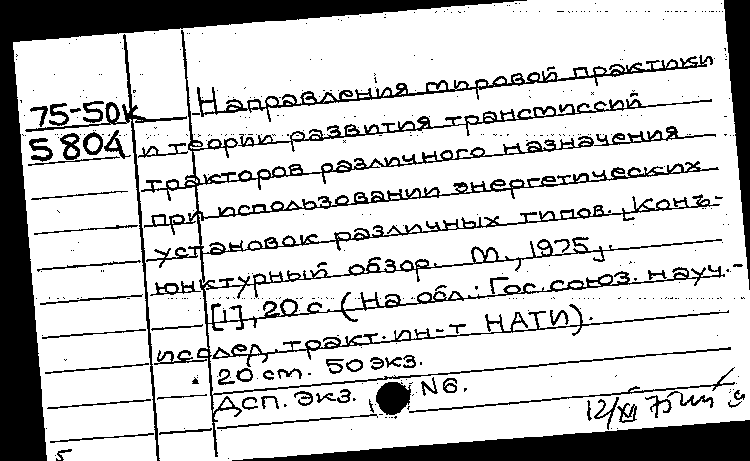 75-50к Направления мировой практики
5804 и теории развития трансмиссий
тракторов различного назначения
при использовании энергетических
установок различных типов. [Конъ-
юнктурный обзор. М., 1975].
[1], 20 с. (На обл.: Гос. союз. науч.-
исслед. тракт. ин-т НАТИ).
20 см. 50 экз.
Дсп. экз. N6.
12/XII 75
5